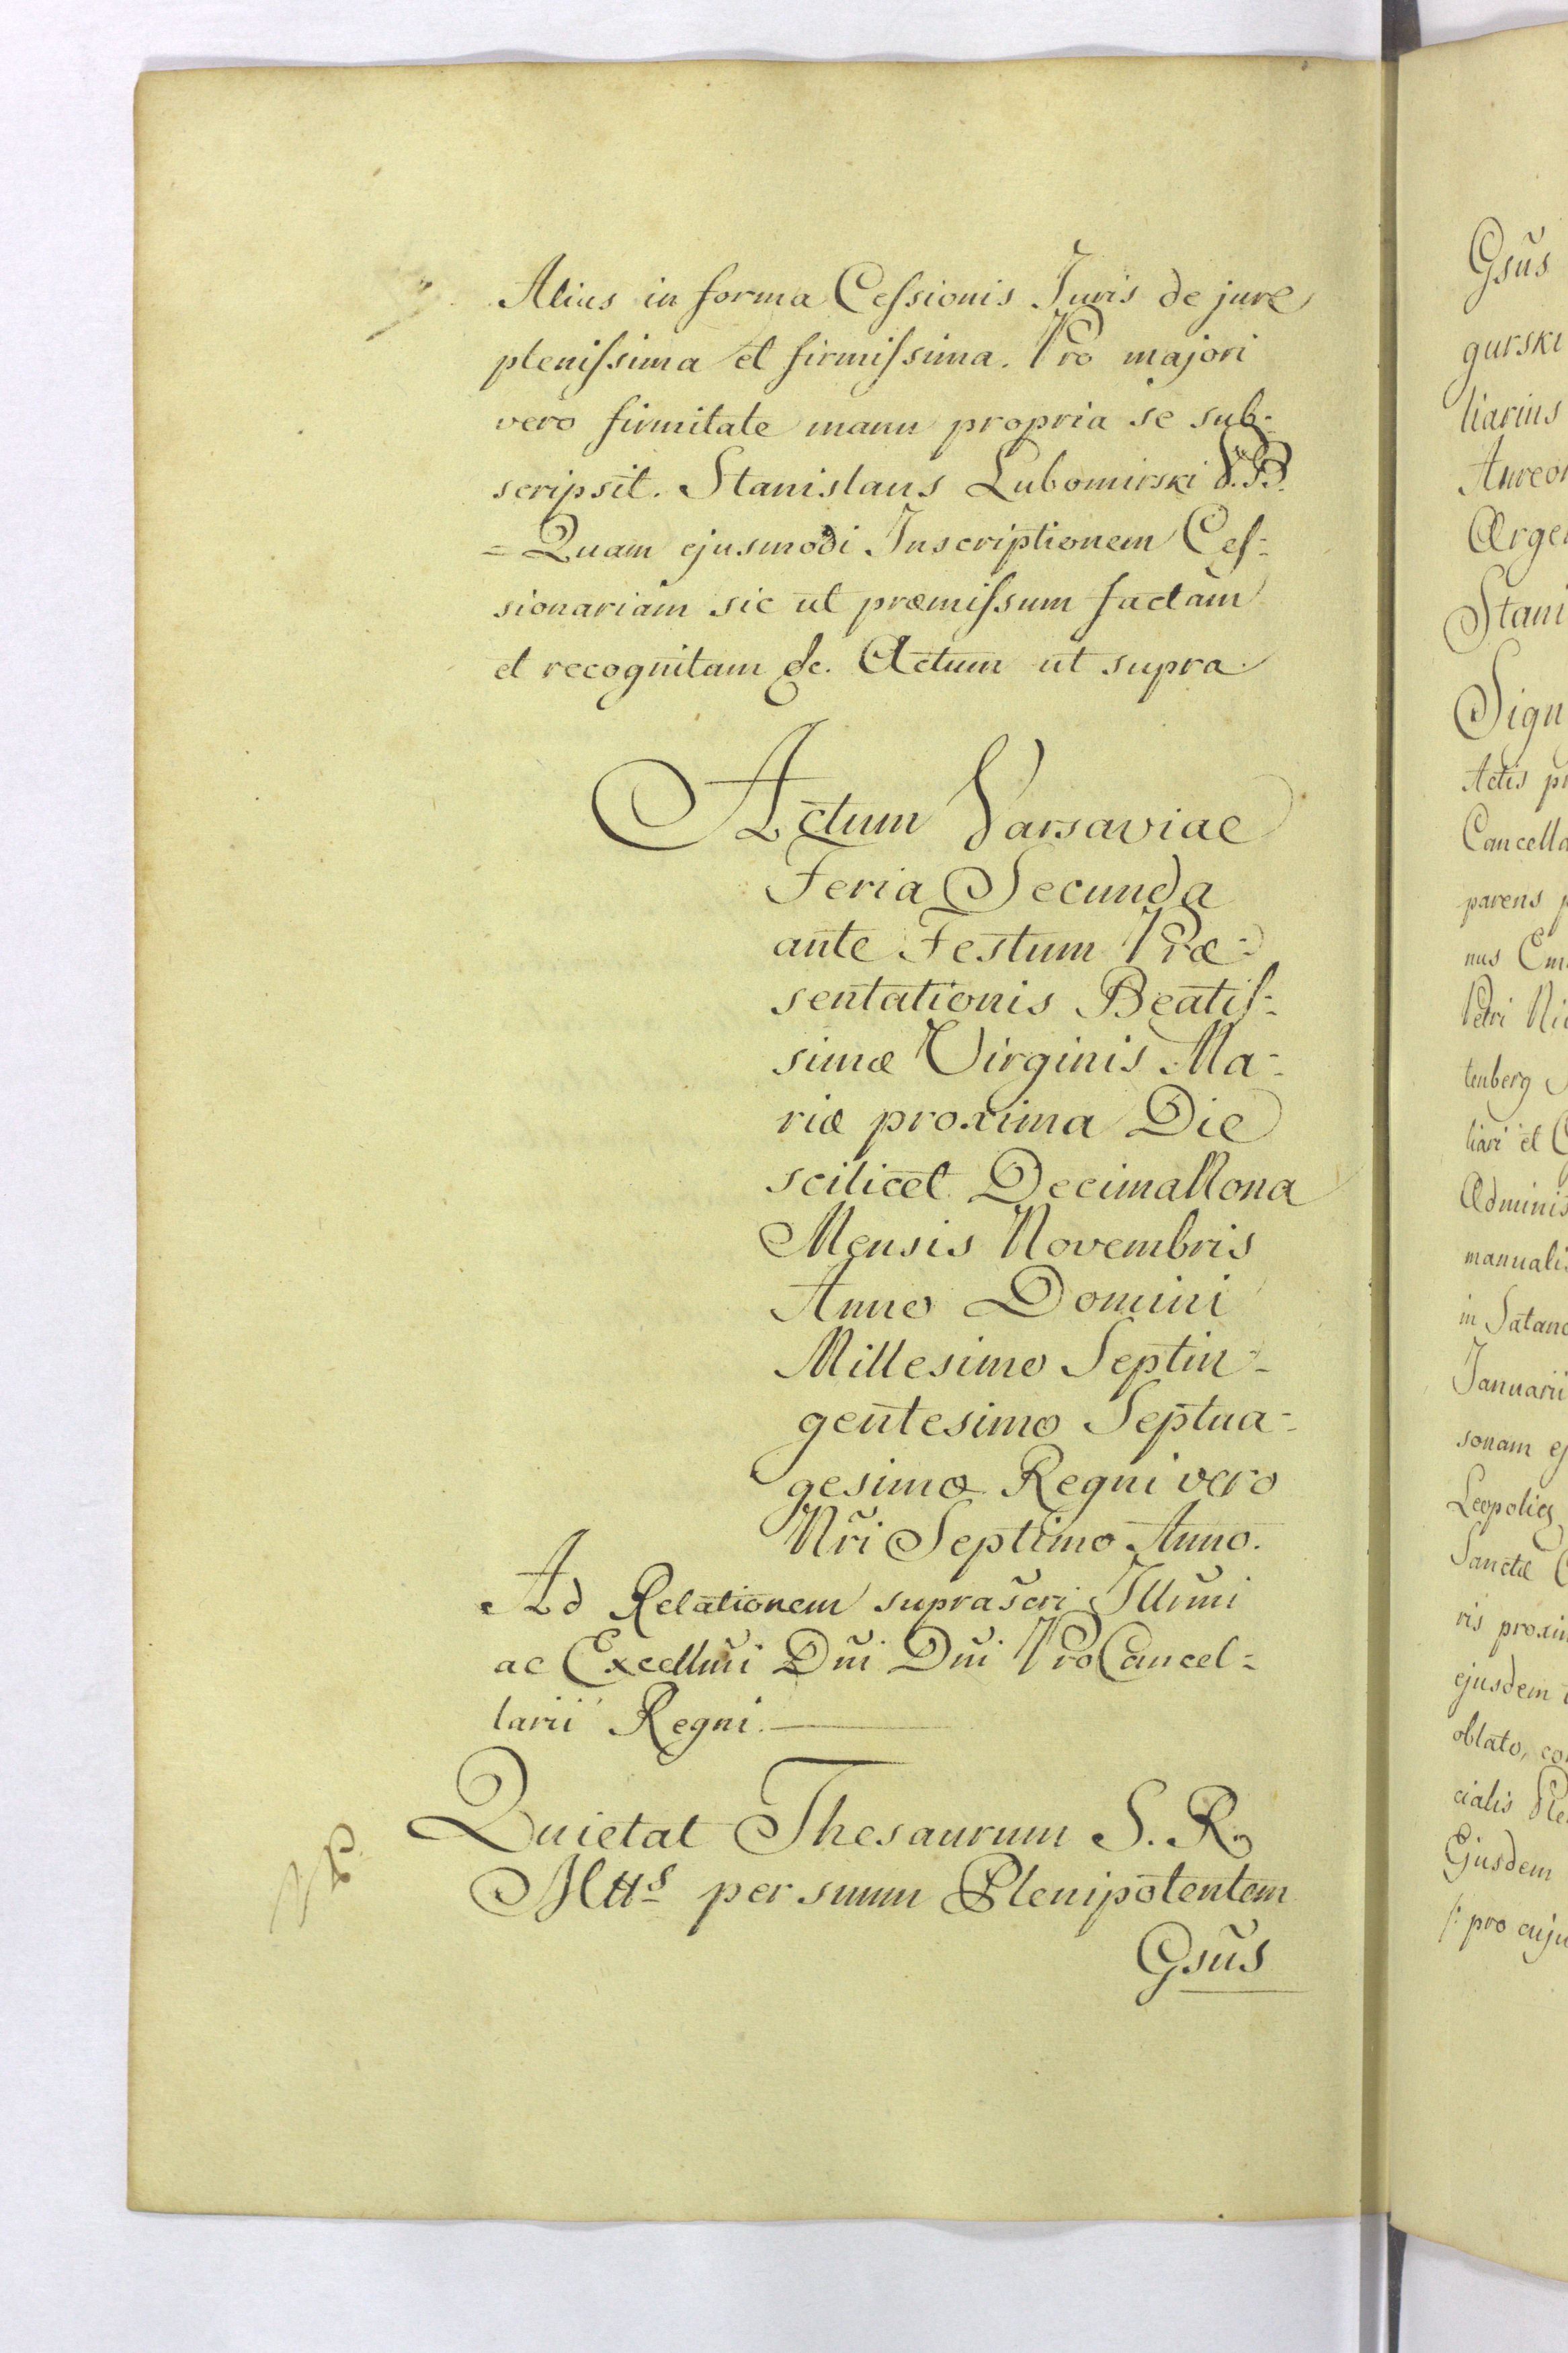 Alius in forma Ceſsionis Juris de jure
pleniſsima et firmiſsima. Pro majori
vero firmitate manu propria se sub=
scripsit. Stanislaus Lubomirski
= Quam ejusmodi Inscriptionem Ceſ=
sionariam sic ut præmiſsum factam
et recognitam &c. Actum ut supra.
Actum Varsaviae
Feria Secunda
ante Festum Præ=
sentationis Beatiſ=
simæ Virginis Ma=
riæ proxima Die
scilicet Decima Nona
Mensis Novembris
Anno Domini
Millesimo Septin=
gentesimo Septua=
gesimo Regni vero
Nri Septimo Anno.
Ad Relationem suprascri Illrmi
ac Excellmi Dni Dni ProCancel=
larii Regni.
Quietat Thesaurum S. R.
Mttis per suum Plenipotentem
Gsus
Gsus
gurski
liarius
Stani
Sign
Actis
Cancella
parens
nus
Petri
tenberg
liari et
Adminis
manualis
in
Januarii
sonam
Sanctæ
ris
ejusdem
oblato,
cialis
Ejusdem
pro cuju